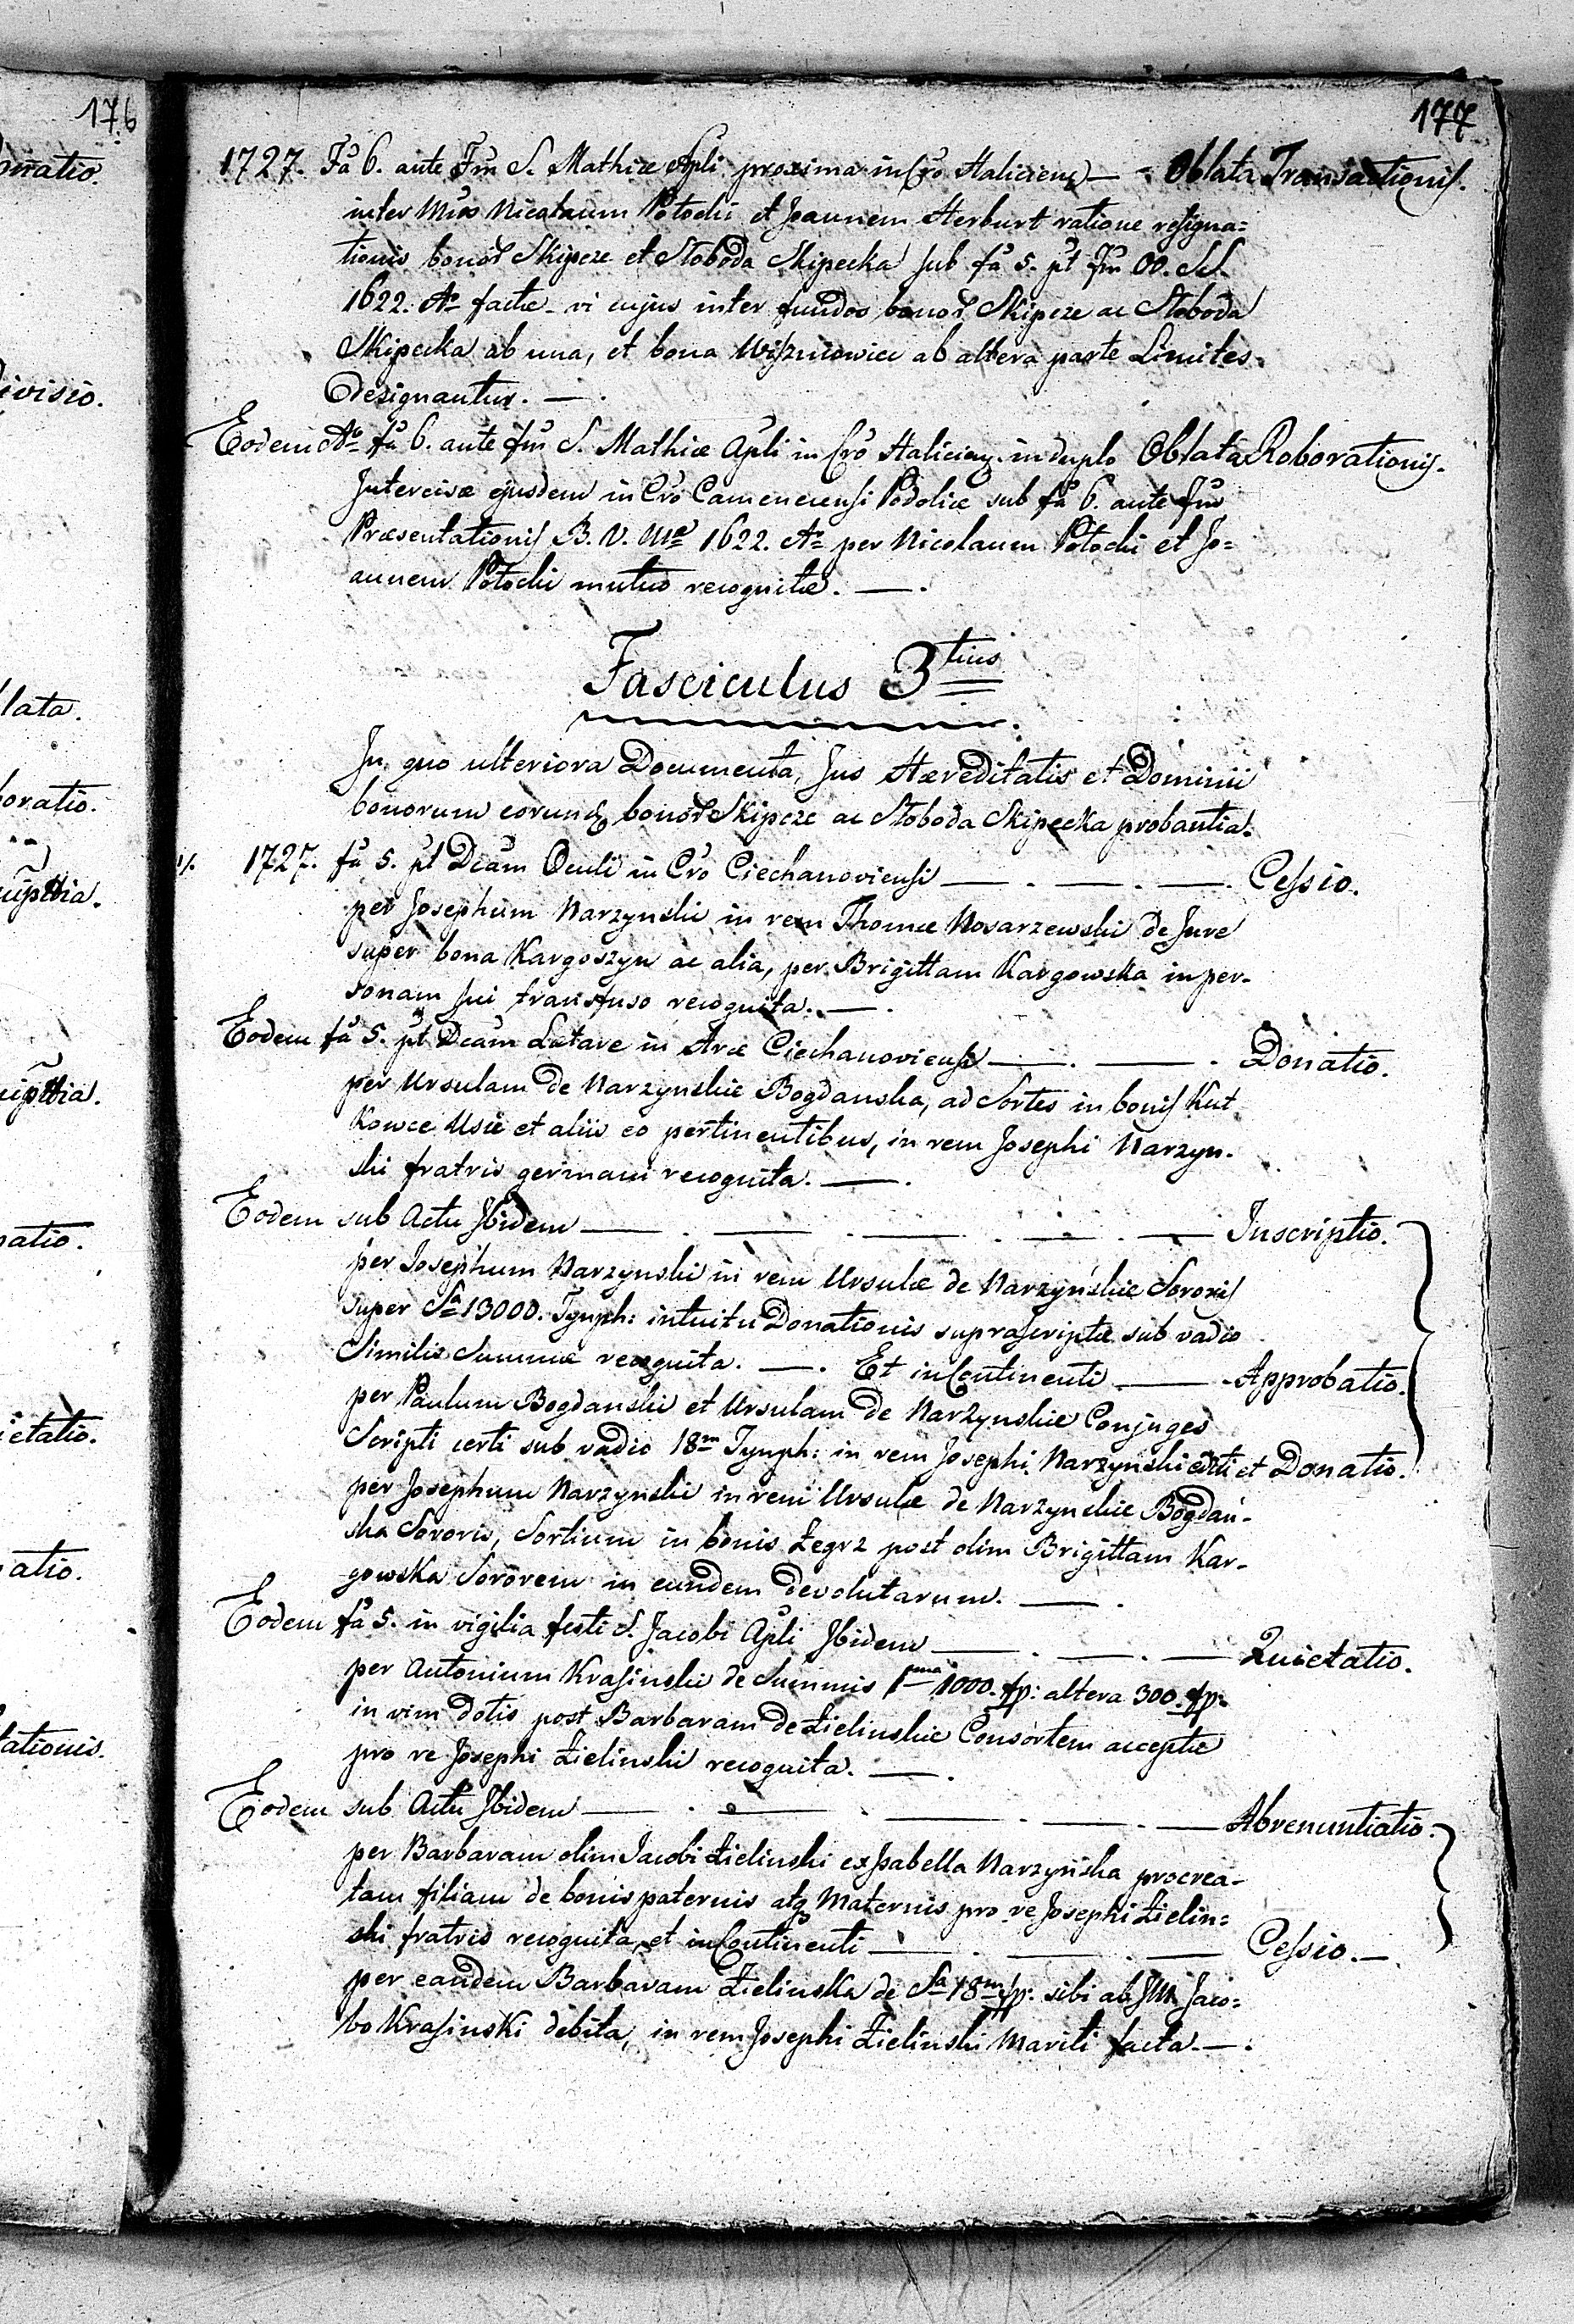 176
177
1727. Fa 6. ante Fm S. Mathiæ Apli proxima in Cro Haliciens — Oblata Transactionis.
inter Mcos Nicolaum Potocki et Joannem Herburt ratione resigna=
tionis bonor Skipcze et Słoboda Skipecka sub fa 5. pt fm OO. SS.
1622. Ao factæ vi cujus inter fundos bonor Skipcze ac Słoboda
Skipecka ab una, et bona ab altera parte Limites
designantur. — .
Eodem Ao fa 6. ante fm S. Mathiæ Apli in Cro Haliciens. in duplo Oblata Roborationis.
Intercisæ ejusdem in Cro Camenecensi Podoliæ sub fa 6. ante fm
Præsentationis B. V. Mæ 1622. Ao per Nicolaum Potocki et Jo=
annem Potocki mutuo recognitæ. — .
Fasciculus 3tius
In quo ulteriora Documenta, Jus Hæreditatis et Dominii
bonorum eorundem bonor Skipcze ac Słoboda Skipecka probantia.
1/. 1727. fa 5. pt Dcam Oculi in Cro Ciechanoviensi — . — . — . Cessio.
per Josephum Narzynski in rem Thomæ Nosarzewski de Jure
super bona Kargoszyn ac alia, per Brigittam Kargowska in per-
sonam sui transfuso recognita. — .
Eodem fa 5. pt Dcam Lætare in Arce Ciechanoviensi — . — . Donatio.
per Ursulam de Narzynskie Bogdanska, ad Sortes in bonis Kut
kowce Usie et aliis eo pertinentibus, in rem Josephi Narzyn-
ski fratris germani recognita. — .
Eodem sub Actu Ibidem — . — . — . — . — Inscriptio.
per Josephum Narzynski in rem Ursulæ de Narzyńskie Sororis
super Sa 13000. Tymph: intuitu Donationis suprascriptæ sub vadio
Similis Summæ recognita. — . Et in Continenti — Approbatio.
per Paulum Bogdanski et Ursulam de Narzynskie Conjuges
Scripti certi sub vadio 18m Tymph: in rem Josephi Narzynski editi et Donatio.
per Josephum Narzynski in rem Ursulæ de Narzynskie Bogdań-
ska Sororis, Sortium in bonis Żegrz post olim Brigittam Kar-
gowska Sororem in eundem devolutarum. — .
Eodem fa 5. in vigilia festi S. Jacobi Apli Ibidem — . — . — Quietatio.
per Antonium Krasinski de Summis 1ma 1000. fp: altera 300. fp.
in vim dotis post Barbaram de Zielinskie Consortem acceptæ
pro re Josephi Zielinski recognita. — .
Eodem sub Actu Ibidem — . — . — . — . — Abrenuntiatio.
per Barbaram olim Jacobi Zielinski ex Isabella Narzyńska procrea-
tam filiam de bonis paternis atq Maternis pro re Josephi Zielin=
ski fratris recognita, et in Continenti — . — . — Cessio. —
per eandem Barbaram Zielinska de Sa 18m fp: sibi ab Jaco=
bo Krasinski debita, in rem Josephi Zielinski Mariti facta. — .